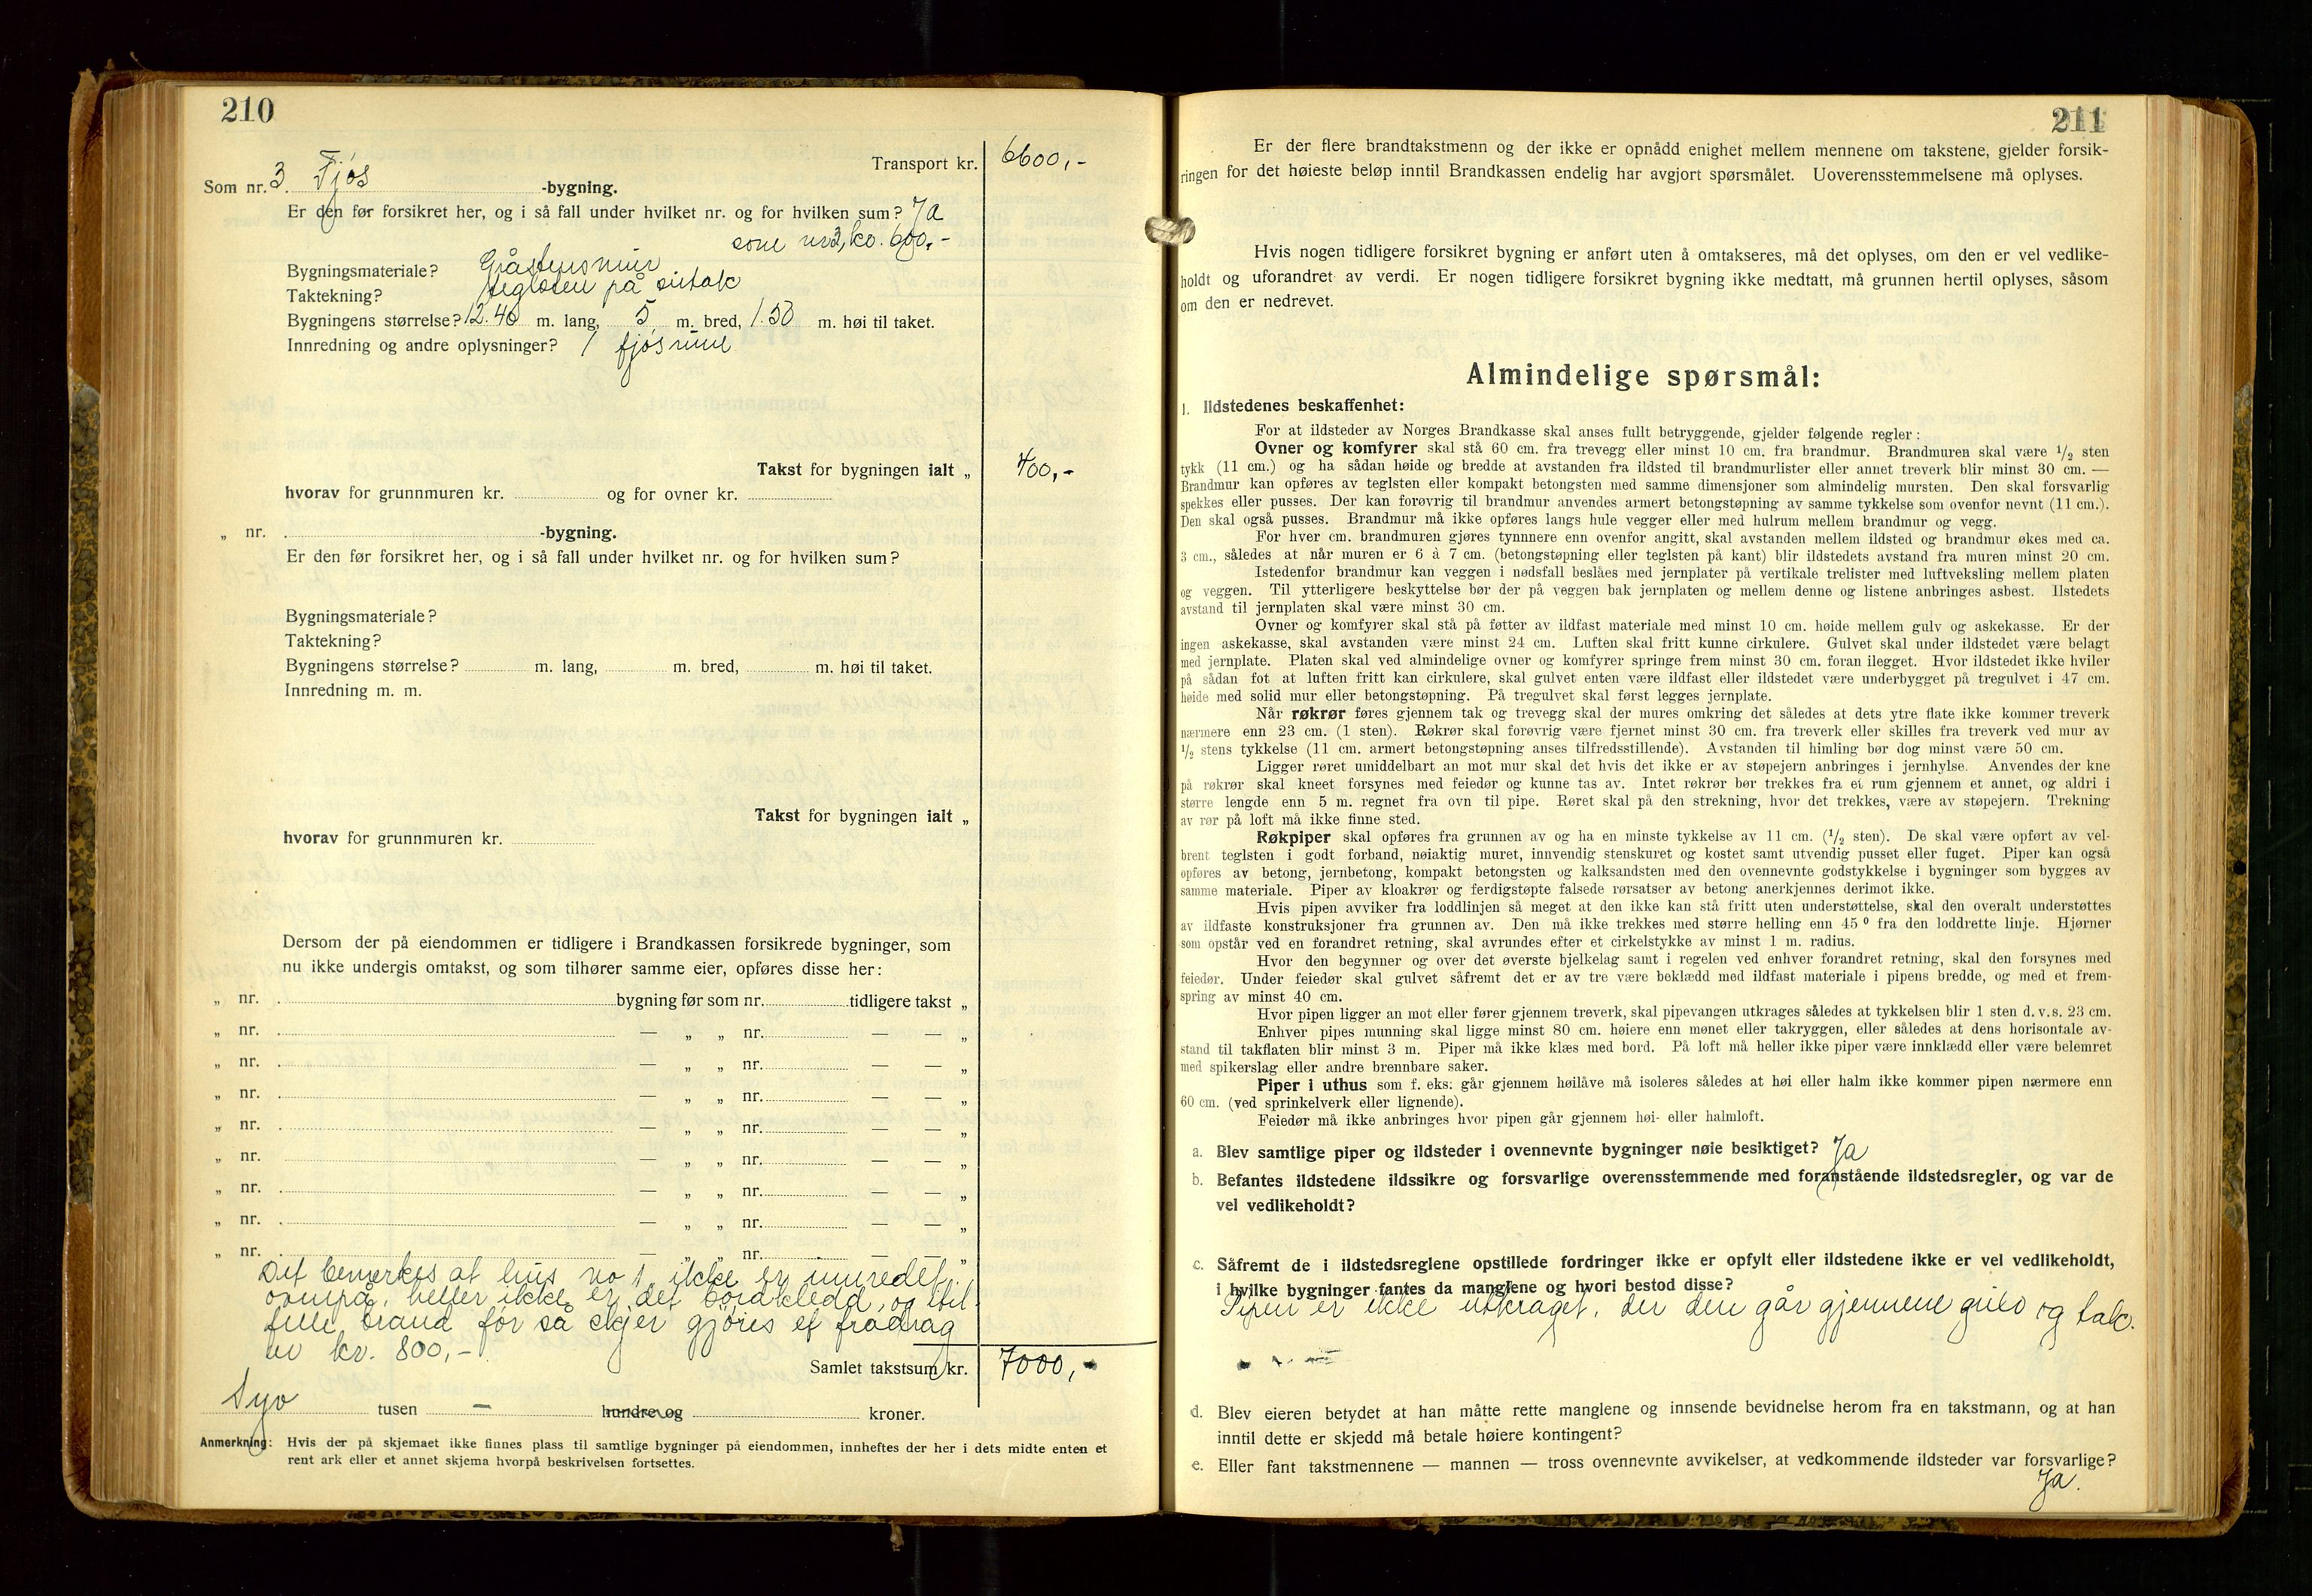 210
Transport kr. 6600,-
Som nr. 3. Fjøs -bygning.
Er den før forsikret her, og i så fall under hvilket nr. og for hvilken sum? Ja
som nr 2, kr. 600,-
Bygningsmateriale? Gråstensmur
Taktekning? teglsten på sutak
Bygningens størrelse? 12.40 m. lang, 5 m. bred, 1.50 m. høi til taket.
Innredning og andre oplysninger? 1 fjøsrum
Takst for bygningen ialt „ 400,-
hvorav for grunnmuren kr. og for ovner kr.
„ nr. -bygning.
Er den før forsikret her, og i så fall under hvilket nr. og for hvilken sum?
Bygningsmateriale?
Taktekning?
Bygningens størrelse? m. lang, m. bred, m. høi til taket.
Innredning m. m.
Takst for bygningen ialt „
hvorav for grunnmuren kr.
Dersom der på eiendommen er tidligere i Brandkassen forsikrede bygninger, som
nu ikke undergis omtakst, og som tilhører samme eier, opføres disse her:
„ nr. bygning før som nr. tidligere takst „
„ nr. — „ „ nr. — — „
„ nr. — „ „ nr. — — „
„ nr. — „ „ nr. — — „
„ nr. — „ „ nr. — — „
„ nr. — „ „ nr. — — „
„ nr. — „ „ nr. — — „
„ nr. — „ „ nr. — — „
„ nr. — „ „ nr. — — „
Det bemerkes at hus no 1 ikke er innredet
ovenpå, heller ikke er det bordkledd, og i til-
felle brand før så skjer gjøres et fradrag
av kr. 800,-
Samlet takstsum kr. 7000,-
Syv tusen — hundre og kroner.
Anmerkning: Hvis der på skjemaet ikke finnes plass til samtlige bygninger på eiendommen, innheftes der her i dets midte enten et
rent ark eller et annet skjema hvorpå beskrivelsen fortsettes.
211
Er der flere brandtakstmenn og der ikke er opnådd enighet mellem mennene om takstene, gjelder forsik-
ringen for det høieste beløp inntil Brandkassen endelig har avgjort spørsmålet. Uoverensstemmelsene må oplyses.
Hvis nogen tidligere forsikret bygning er anført uten å omtakseres, må det oplyses, om den er vel vedlike-
holdt og uforandret av verdi. Er nogen tidligere forsikret bygning ikke medtatt, må grunnen hertil oplyses, såsom
om den er nedrevet.
Almindelige spørsmål:
1. Ildstedenes beskaffenhet:
For at ildsteder av Norges Brandkasse skal anses fullt betryggende, gjelder følgende regler:
Ovner og komfyrer skal stå 60 cm. fra trevegg eller minst 10 cm. fra brandmur. Brandmuren skal være 1/2 sten
tykk (11 cm.) og ha sådan høide og bredde at avstanden fra ildsted til brandmurlister eller annet treverk blir minst 30 cm. —
Brandmur kan opføres av teglsten eller kompakt betongsten med samme dimensjoner som almindelig mursten. Den skal forsvarlig
spekkes eller pusses. Der kan forøvrig til brandmur anvendes armert betongstøpning av samme tykkelse som ovenfor nevnt (11 cm.).
Den skal også pusses. Brandmur må ikke opføres langs hule vegger eller med hulrum mellem brandmur og vegg.
For hver cm. brandmuren gjøres tynnnere enn ovenfor angitt, skal avstanden mellem ildsted og brandmur økes med ca.
3 cm., således at når muren er 6 à 7 cm. (betongstøpning eller teglsten på kant) blir ildstedets avstand fra muren minst 20 cm.
Istedenfor brandmur kan veggen i nødsfall beslåes med jernplater på vertikale trelister med luftveksling mellem platen
og veggen. Til ytterligere beskyttelse bør der på veggen bak jernplaten og mellem denne og listene anbringes asbest. Ilstedets
avstand til jernplaten skal være minst 30 cm.
Ovner og komfyrer skal stå på føtter av ildfast materiale med minst 10 cm. høide mellem gulv og askekasse. Er der
ingen askekasse, skal avstanden være minst 24 cm. Luften skal fritt kunne cirkulere. Gulvet skal under ildstedet være belagt
med jernplate. Platen skal ved almindelige ovner og komfyrer springe frem minst 30 cm. foran ilegget. Hvor ildstedet ikke hviler
på sådan fot at luften fritt kan cirkulere, skal gulvet enten være ildfast eller ildstedet være underbygget på tregulvet i 47 cm.
høide med solid mur eller betongstøpning. På tregulvet skal først legges jernplate.
Når røkrør føres gjennem tak og trevegg skal der mures omkring det således at dets ytre flate ikke kommer treverk
nærmere enn 23 cm. (1 sten). Røkrør skal forøvrig være fjernet minst 30 cm. fra treverk eller skilles fra treverk ved mur av
1/2 stens tykkelse (11 cm. armert betongstøpning anses tilfredsstillende). Avstanden til himling bør dog minst være 50 cm.
Ligger røret umiddelbart an mot mur skal det hvis det ikke er av støpejern anbringes i jernhylse. Anvendes der kne
på røkrør skal kneet forsynes med feiedør og kunne tas av. Intet røkrør bør trekkes fra et rum gjennem et annet, og aldri i
større lengde enn 5 m. regnet fra ovn til pipe. Røret skal på den strekning, hvor det trekkes, være av støpejern. Trekning
av rør på loft må ikke finne sted.
Røkpiper skal opføres fra grunnen av og ha en minste tykkelse av 11 cm. (1/2 sten). De skal være opført av vel-
brent teglsten i godt forband, nøiaktig muret, innvendig stenskuret og kostet samt utvendig pusset eller fuget. Piper kan også
opføres av betong, jernbetong, kompakt betongsten og kalksandsten med den ovennevnte godstykkelse i bygninger som bygges av
samme materiale. Piper av kloakrør og ferdigstøpte falsede rørsatser av betong anerkjennes derimot ikke.
Hvis pipen avviker fra loddlinjen så meget at den ikke kan stå fritt uten understøttelse, skal den overalt understøttes
av ildfaste konstruksjoner fra grunnen av. Den må ikke trekkes med større helling enn 45 ⁰ fra den loddrette linje. Hjørner
som opstår ved en forandret retning, skal avrundes efter et cirkelstykke av minst 1 m. radius.
Hvor den begynner og over det øverste bjelkelag samt i regelen ved enhver forandret retning, skal den forsynes med
feiedør. Under feiedør skal gulvet såfremt det er av tre være beklædd med ildfast materiale i pipens bredde, og med et frem-
spring av minst 40 cm.
Hvor pipen ligger an mot eller fører gjennem treverk, skal pipevangen utkrages således at tykkelsen blir 1 sten d. v. s. 23 cm.
Enhver pipes munning skal ligge minst 80 cm. høiere enn mønet eller takryggen, eller således at dens horisontale av-
stand til takflaten blir minst 3 m. Piper må ikke klæs med bord. På loft må heller ikke piper være innklædd eller være belemret
med spikerslag eller andre brennbare saker.
Piper i uthus som f. eks. går gjennem høilåve må isoleres således at høi eller halm ikke kommer pipen nærmere enn
60 cm. (ved sprinkelverk eller lignende).
Feiedør må ikke anbringes hvor pipen går gjennem høi- eller halmloft.
a. Blev samtlige piper og ildsteder i ovennevnte bygninger nøie besiktiget? Ja
b. Befantes ildstedene ildssikre og forsvarlige overensstemmende med foranstående ildstedsregler, og var de
vel vedlikeholdt?
c. Såfremt de i ildstedsreglene opstillede fordringer ikke er opfylt eller ildstedene ikke er vel vedlikeholdt,
i hvilke bygninger fantes da manglene og hvori bestod disse?
Pipen er ikke utkraget, der den går gjennem gulv og tak.
d. Blev eieren betydet at han måtte rette manglene og innsende bevidnelse herom fra en takstmann, og at han
inntil dette er skjedd må betale høiere kontingent?
e. Eller fant takstmennene — mannen — tross ovennevnte avvikelser, at vedkommende ildsteder var forsvarlige?
Ja.